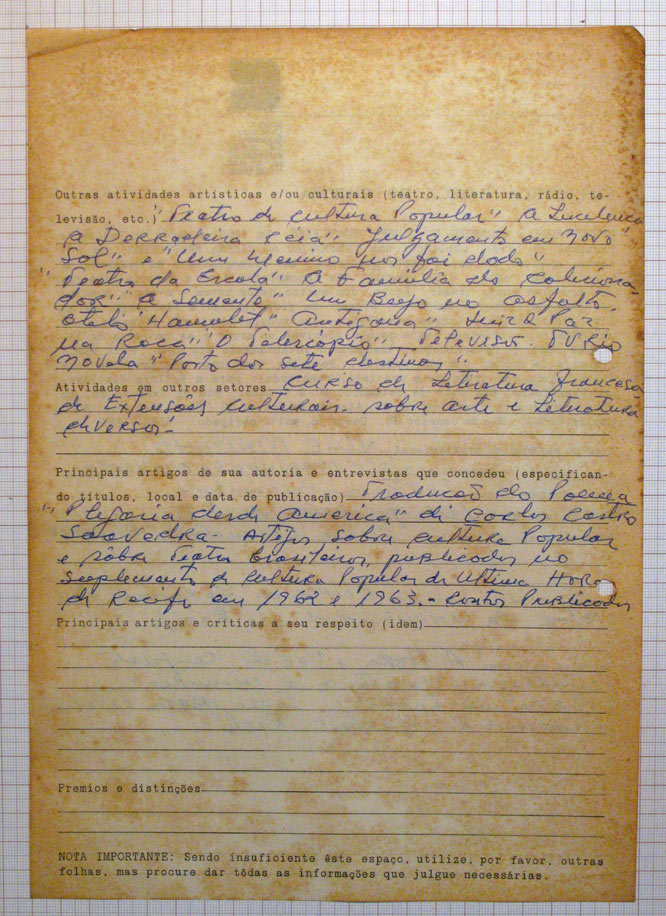 Outras atividades artísticas e/ou culturais (teatro, literatura, rádio, te-
levisão, etc.) "Teatro de Cultura Popular" A
A Derradeira Ceia" Julgamento em Novo
Sol" e "Um Menino nos foi dado"
"Teatro da Escola" A Familia do Coleciona-
dor" "A Semente" Um Beijo no asfalto.
Otelo Hamlet" Antigona" Luiz Paz
na Roca" O Telescopio" Televisão. TV Rio
Novela "Porto dos sete destinos".
Atividades em outros setores Curso de Literatura francesa
de Extensões culturais. sobre arte e Literatura
diversos.
Principais artigos de sua autoria e entrevistas que concedeu (especifican-
do títulos, local e data de publicação) Traducão do Poema
"Plegaria desde America" di Carlos Castro
Saavedra. Artigos sobre Cultura Popular
e sôbre Teatro brasileiro, publicados no
suplemento de Cultura Popular da Ultima Hora
de Recife em 1962 e 1963. - Contos Publicados
Principais artigos e críticas a seu respeito (idem)
Premios e distinções
NOTA IMPORTANTE: Sendo insuficiente êste espaço, utilize, por favor, outras
folhas, mas procure dar tôdas as informações que julgue necessárias.